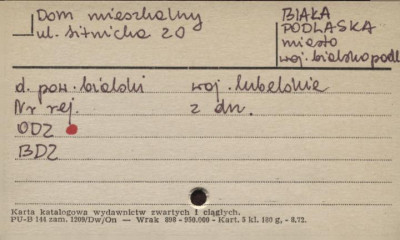 Dom mieszkalny
ul. Sitnicka 20
BIAŁA
PODLASKA
miasto
woj. bialskopodl
d. pow. bialski woj. lubelskie
Nr rej. z dn.
ODZ
BDZ
Karta katalogowa wydawnictw zwartych i ciągłych.
PU-B 144 zam. 1209/Dw/On — Wrak 898 - 950.000 - Kart. 3 kl. 180 g, - 8.72.